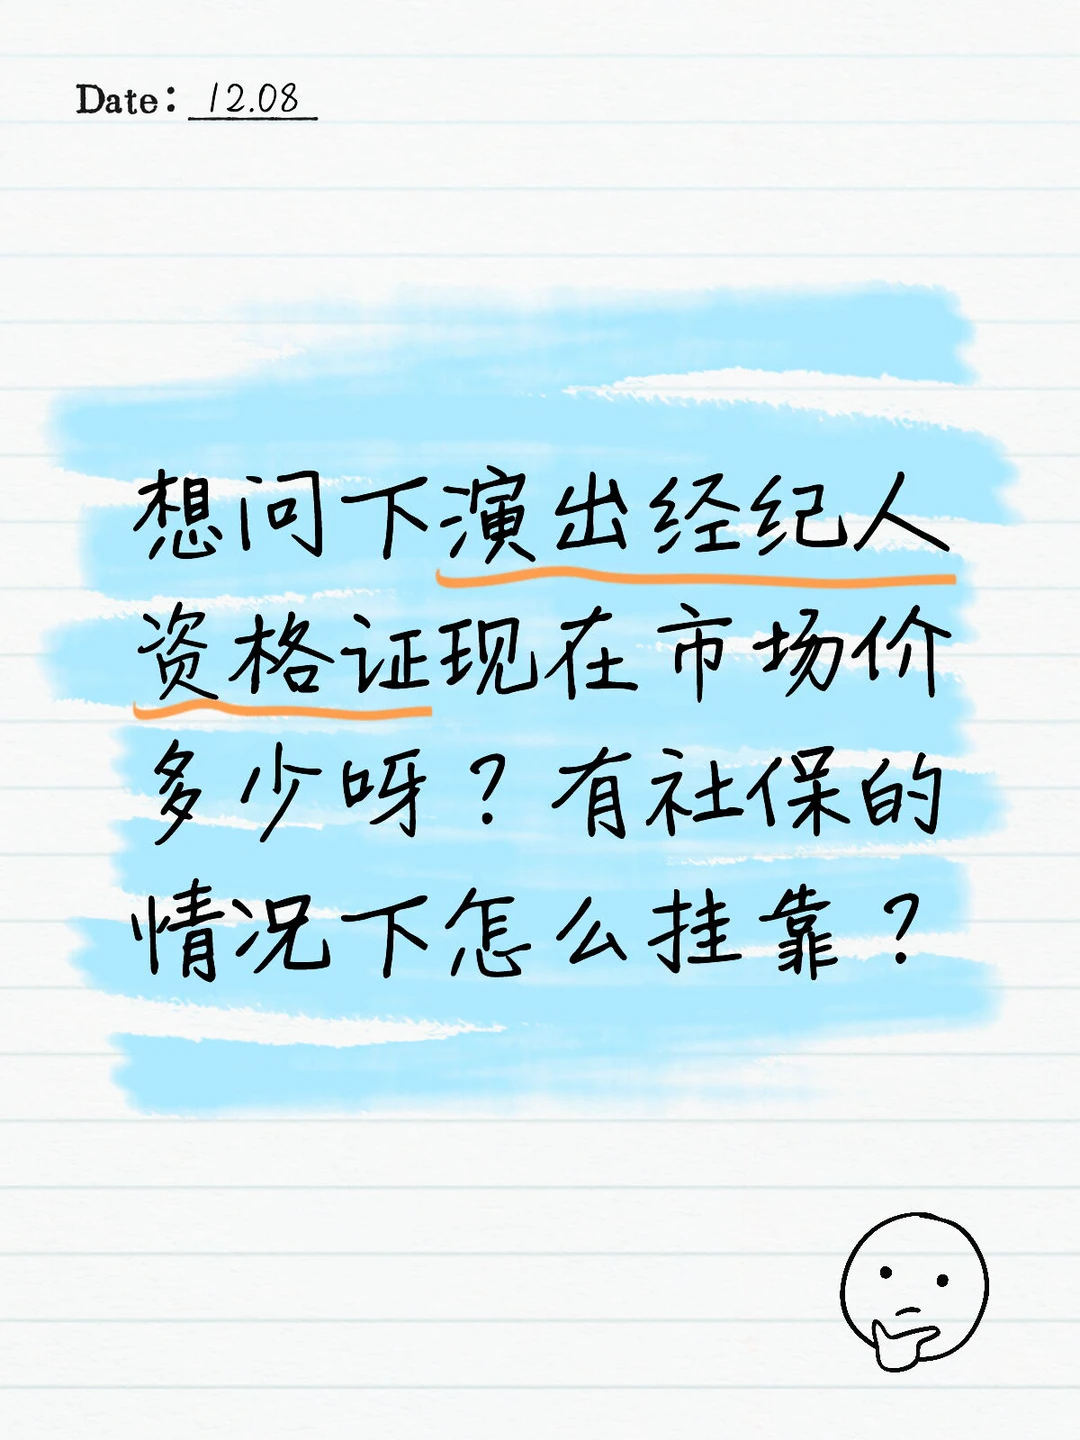 Date: 12.08
想问下演出经纪人
资格证现在市场价
多少呀？有社保的
情况下怎么挂靠？